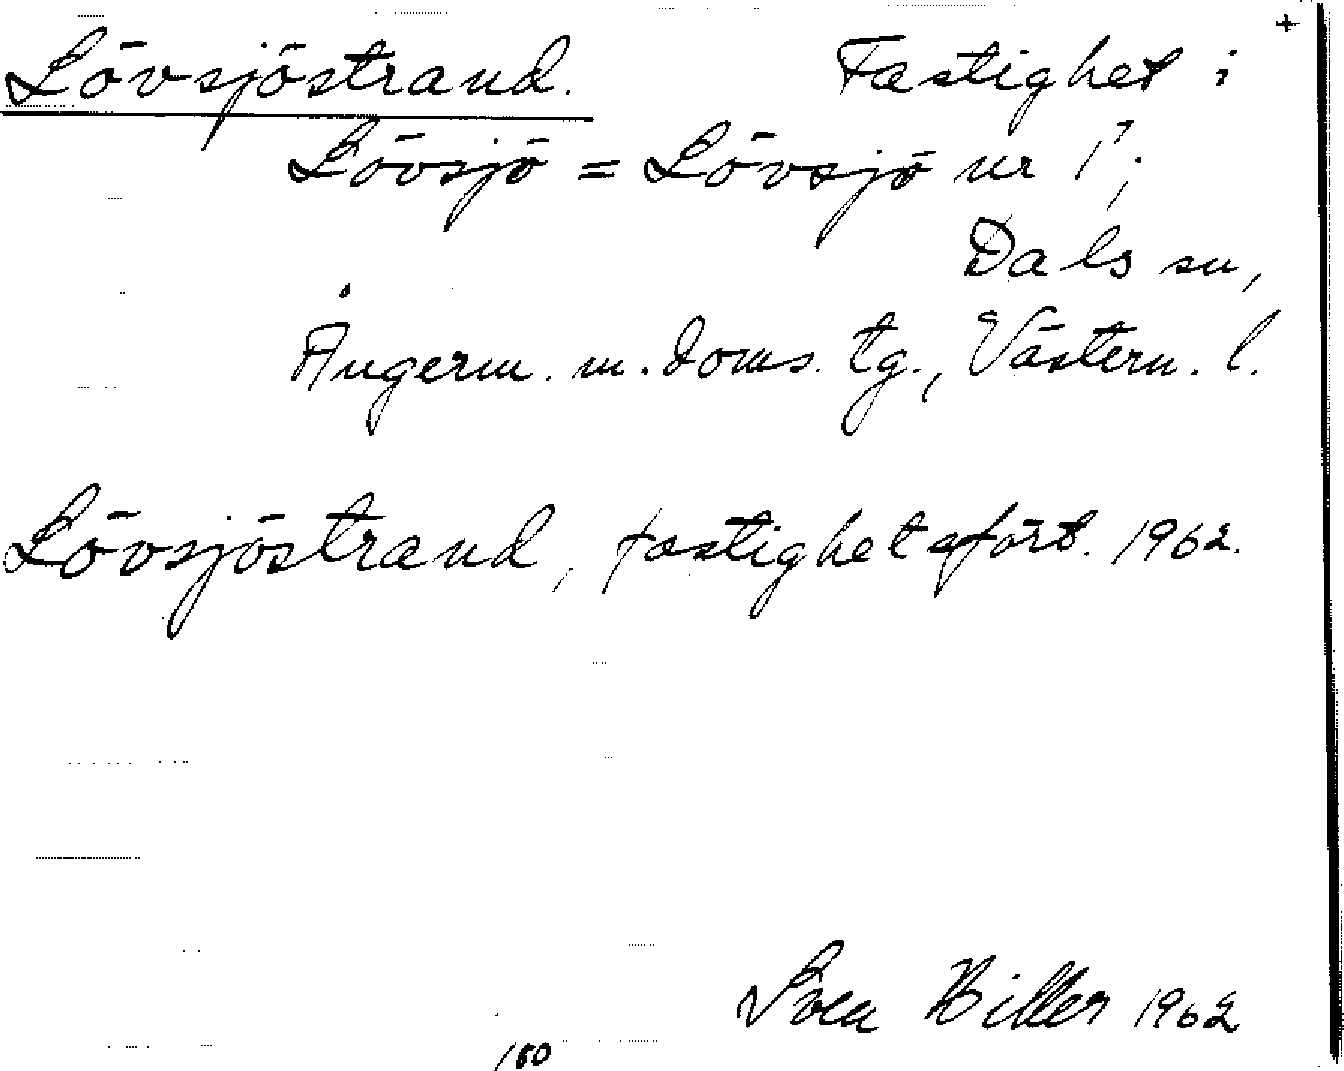 +
Lövsjöstrand. Fastighet i
Lövsjö = Lövsjö nr 1⁷;
Dals sn,
Ångerm. m. doms. tg., Västern. l.
Lövsjöstrand, fastighetsfört. 1962.
Sven Hiller 1962
180